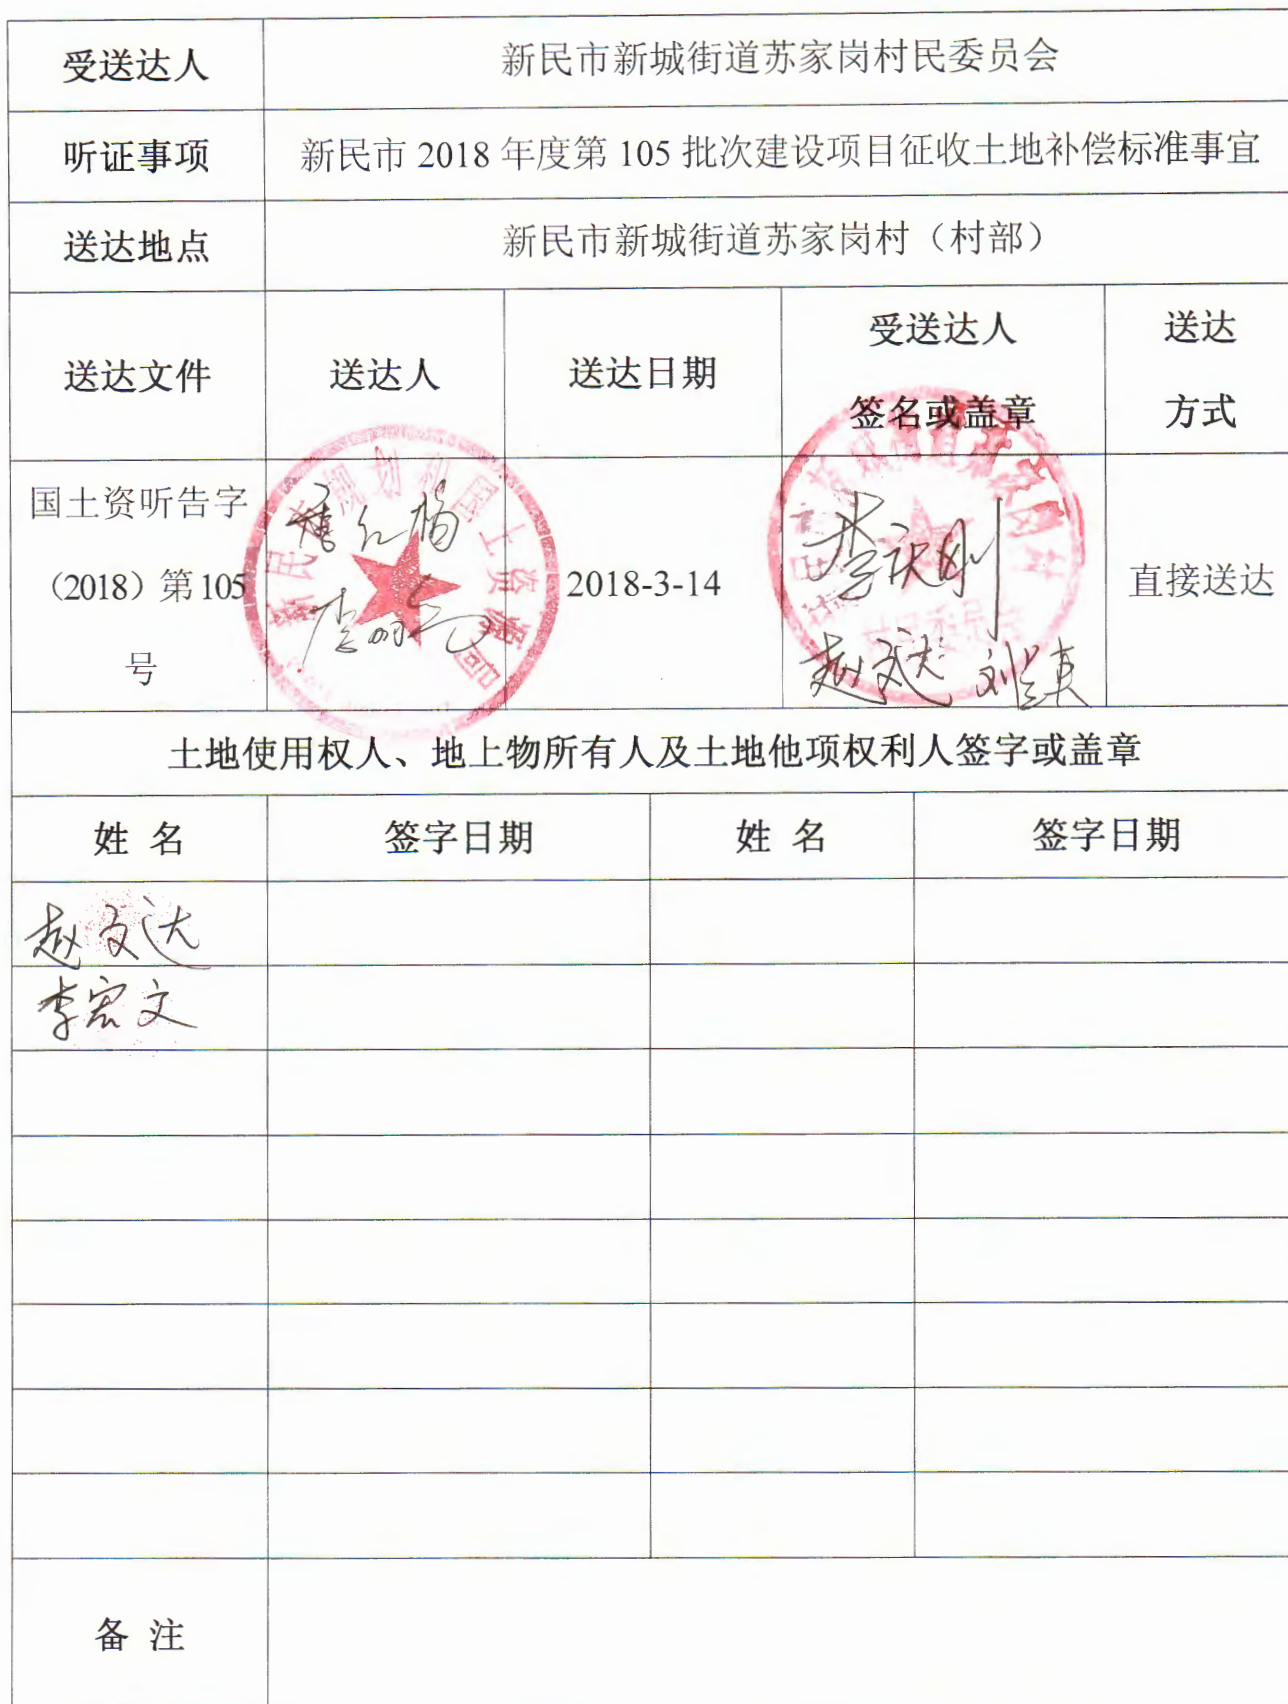 受送达人 新民市新城街道苏家岗村民委员会
听证事项 新民市 2018 年度第 105 批次建设项目征收土地补偿标准事宜
送达地点 新民市新城街道苏家岗村（村部）
送达文件 送达人 送达日期 受送达人 签名或盖章 送达 方式
国土资听告字
（2018）第 105
号
2018-3-14
赵文达
直接送达
土地使用权人、地上物所有人及土地他项权利人签字或盖章
姓 名 签字日期 姓 名 签字日期
赵文达
李宏文
备 注